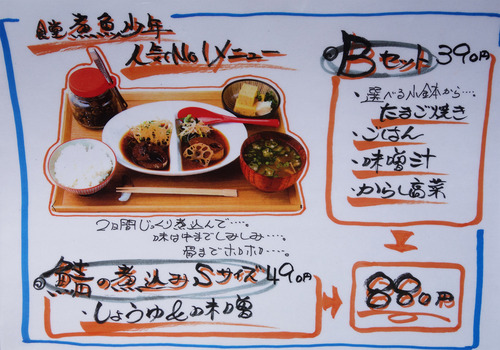 煮魚少年
人気No1メニュー
Bセット 390円
・選べる小鉢本から…
たまご焼き
・ごはん
・味噌汁
・からし高菜
2日間じっくり煮込んで…。
味は中までしみしみ…。
骨までホロホロ…。
鯖の煮込みSサイズ490円
・しょうゆ&味噌
880円